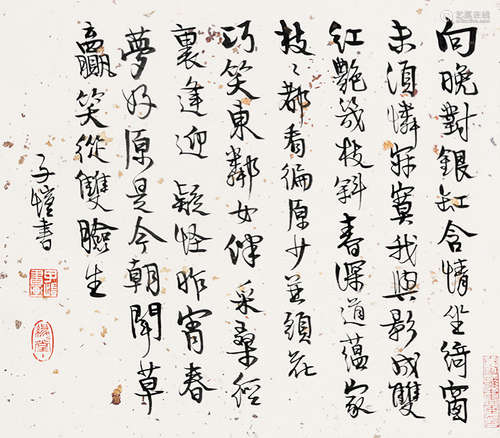 向晚對銀缸含情坐綺窗
未須憐寂寞我與影成雙
紅艷幾枝斜春深道蘊家
枝〻都看徧原少並頭花
巧笑東鄰女伴采桑徑
裏逢迎疑怪昨宵春
夢好原是今朝鬥草
贏笑從雙臉生
子愷書